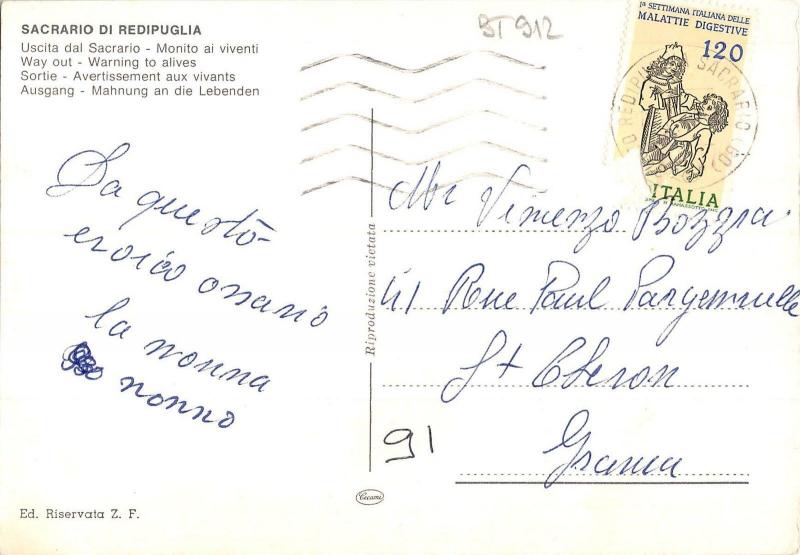 SACRARIO DI REDIPUGLIA
Uscita dal Sacrario - Monito ai viventi
Way out - Warning to alives
Sortie - Avertissement aux vivants
Ausgang - Mahnung an die Lebenden
ST 912
1ª SETTIMANA ITALIANA DELLE
MALATTIE DIGESTIVE
120
ITALIA
SACRARIO
Da questo
eroico ossario
la nonna
nonno
Riproduzione vietata
Mr Vincenzo Bozza
41 Rue Paul
St Cheron
91
Cecami
Ed. Riservata Z. F.